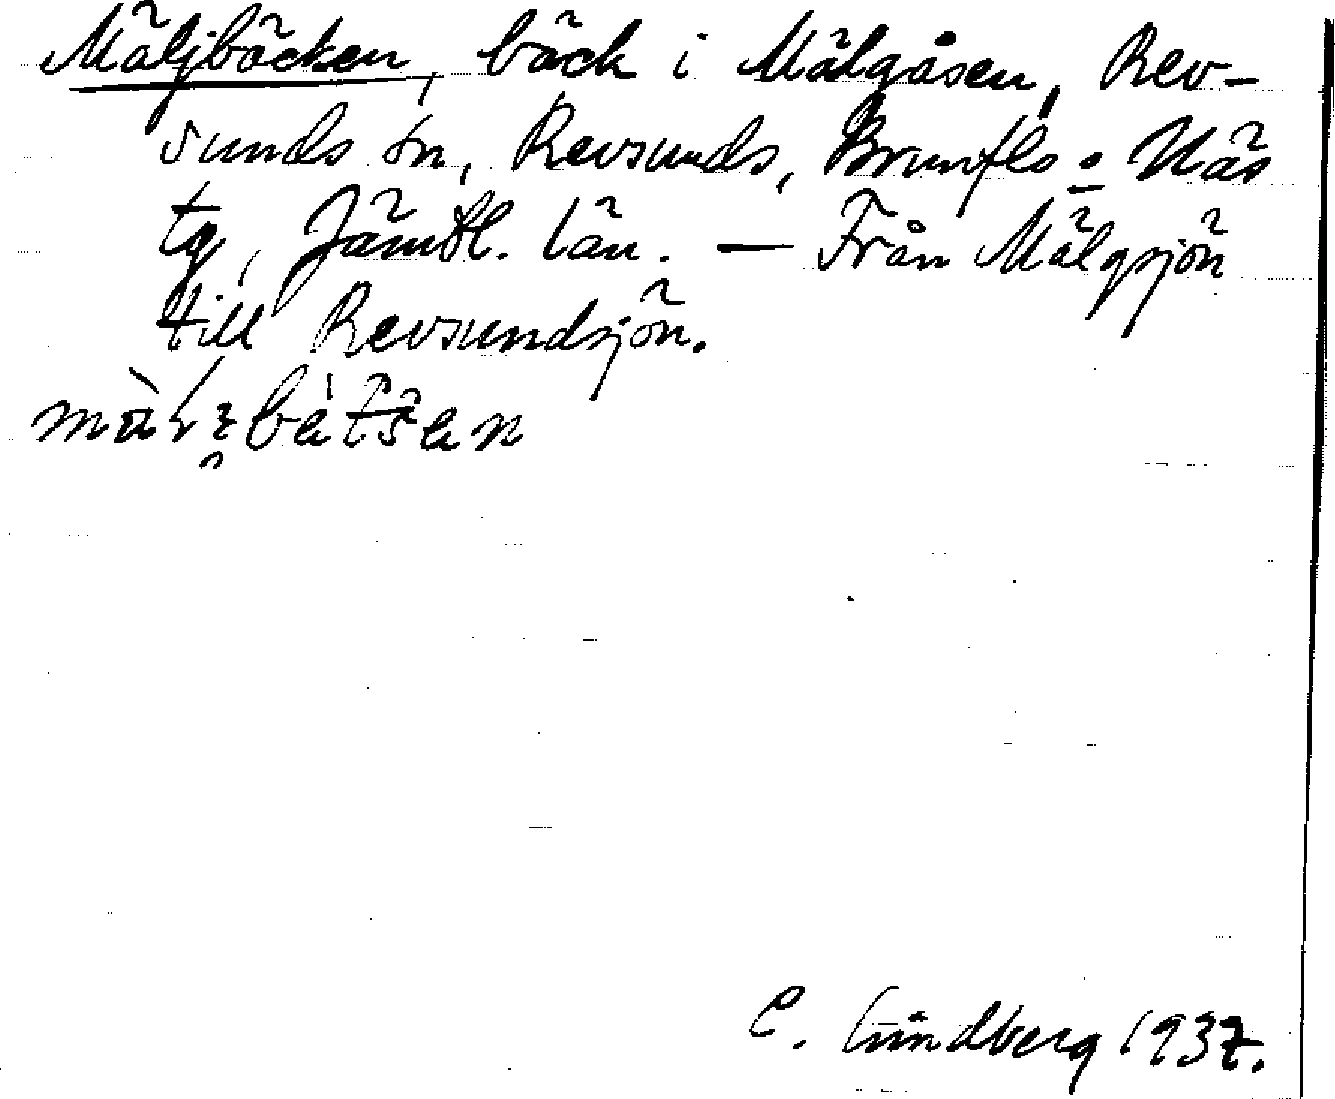 Mäljbäcken, bäck i Mälgåsen, Rev-
sunds sn, Revsunds, Brunflo o Näs
tg, Jämtl. län. — Från Mälgsjön
till Revsundsjön.
C. Lindberg 1937.